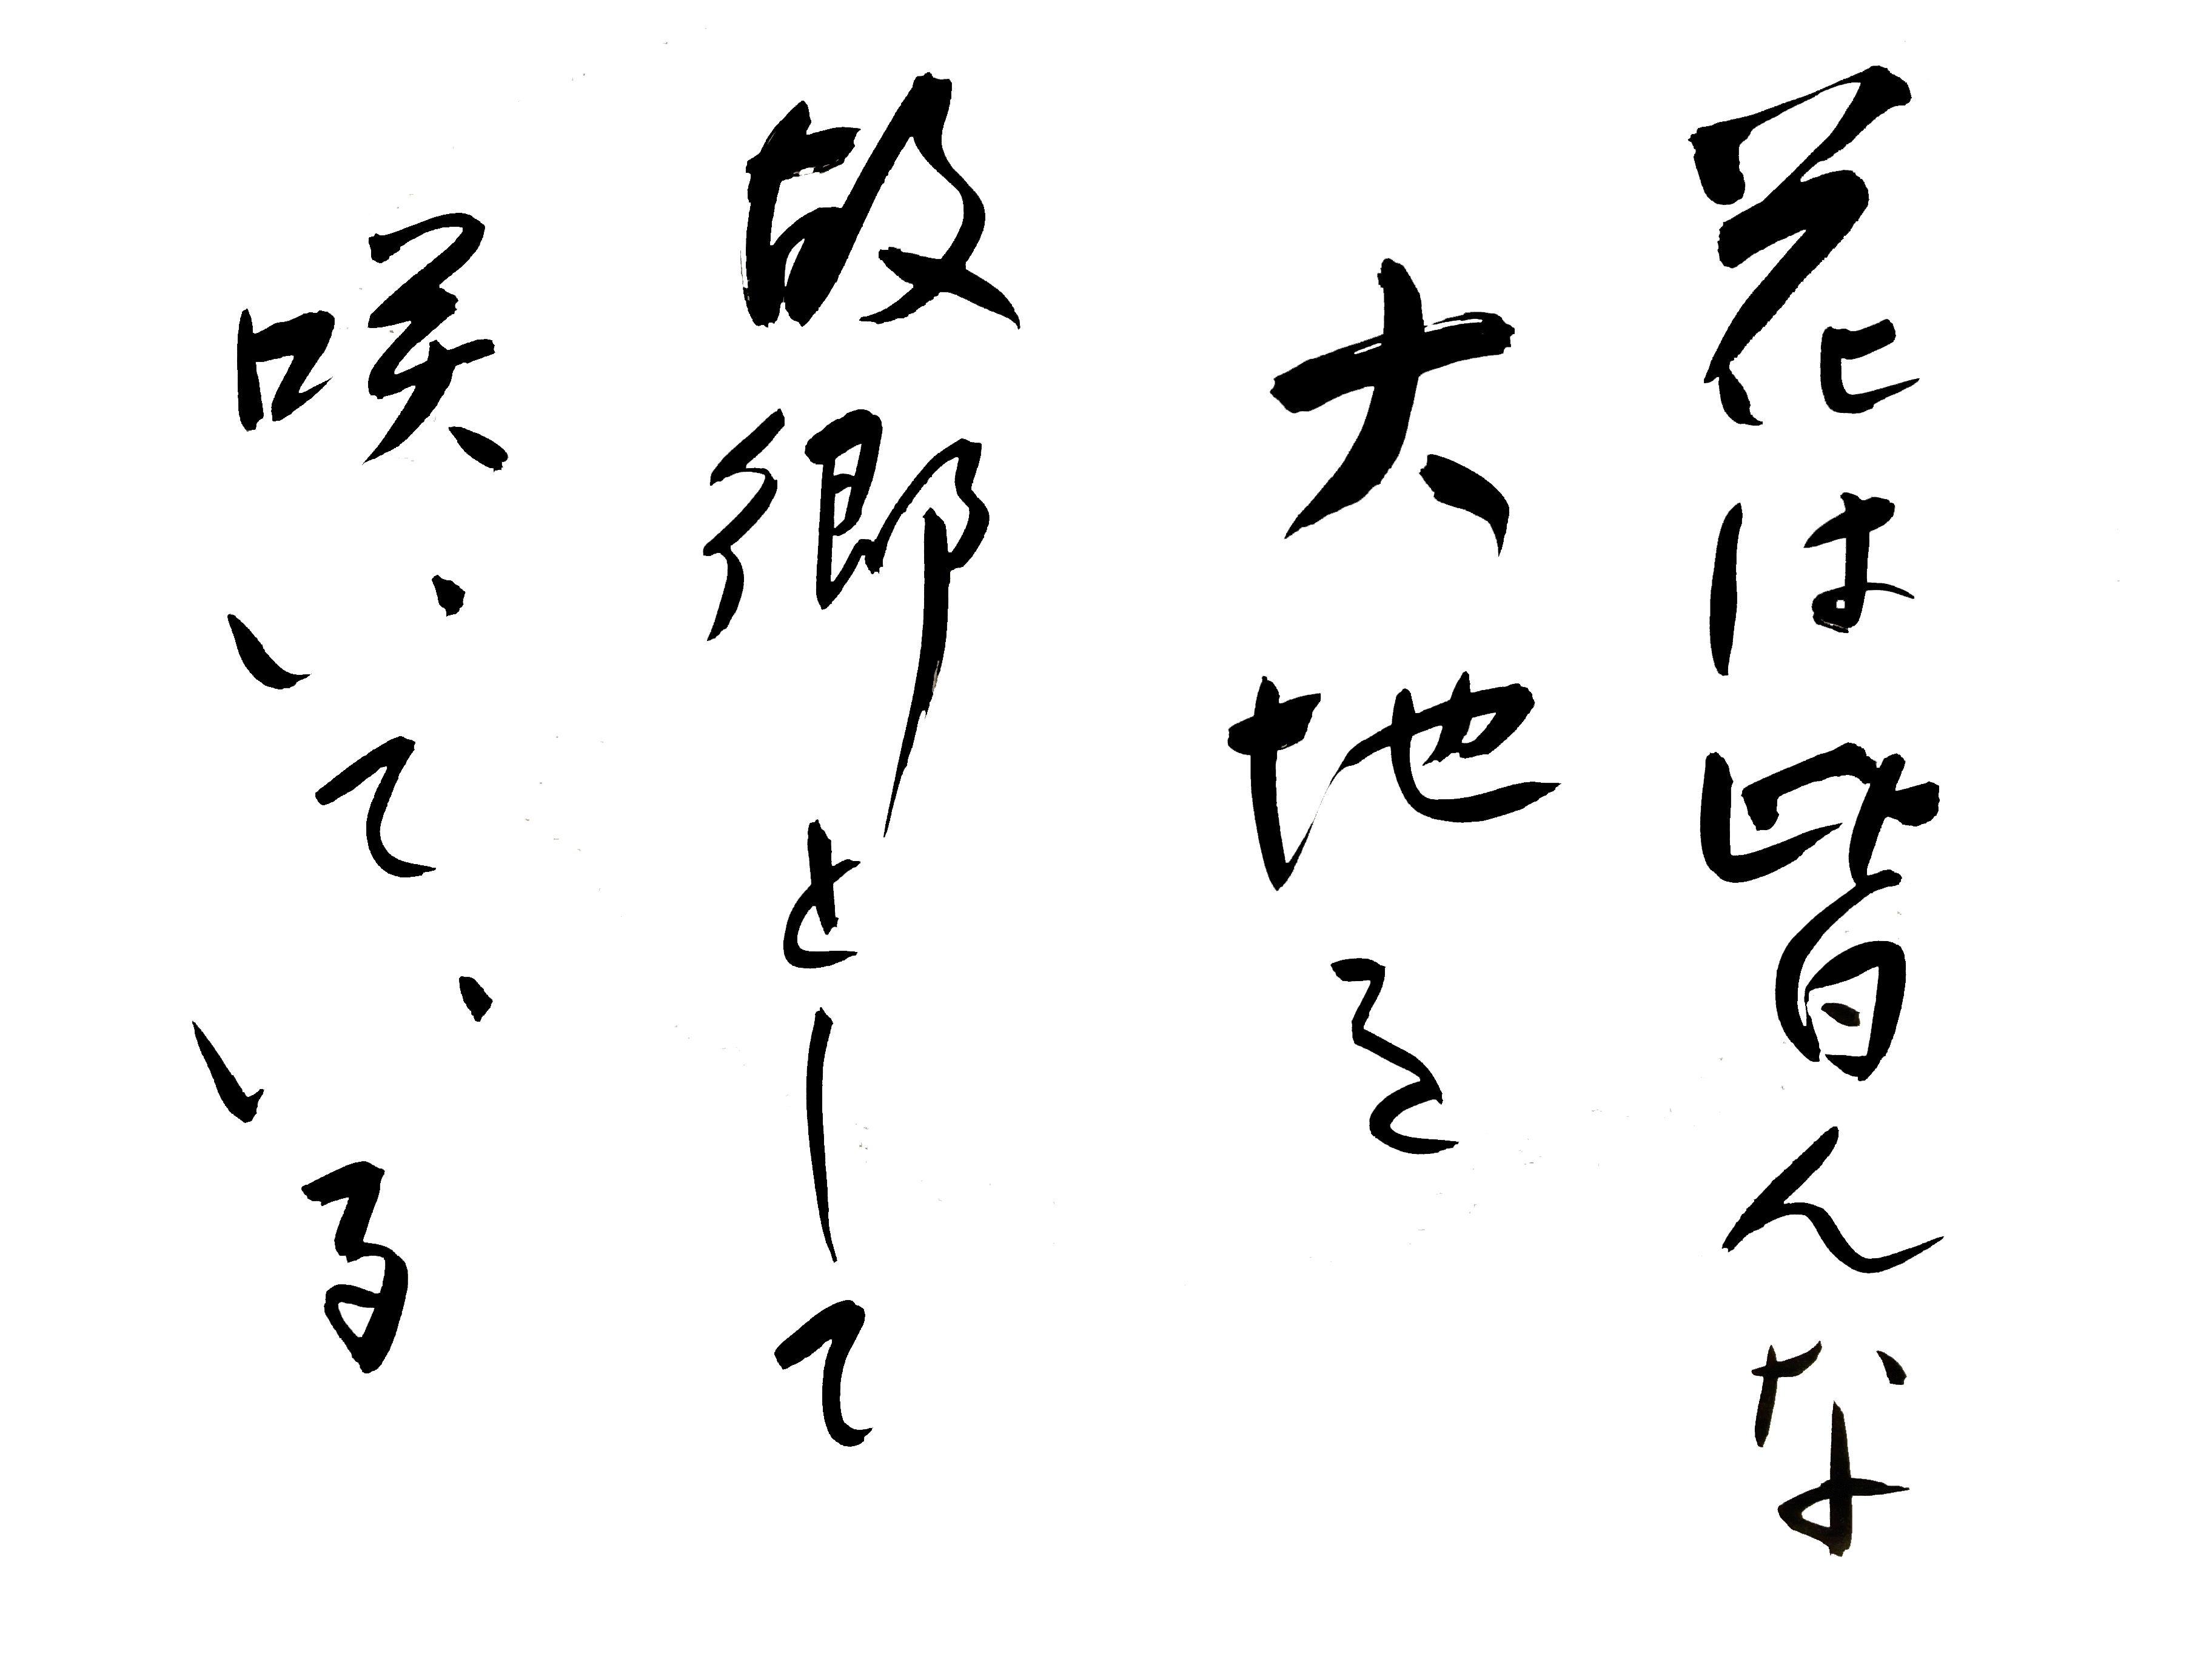 花は皆んな
大地を
故郷として
咲いている